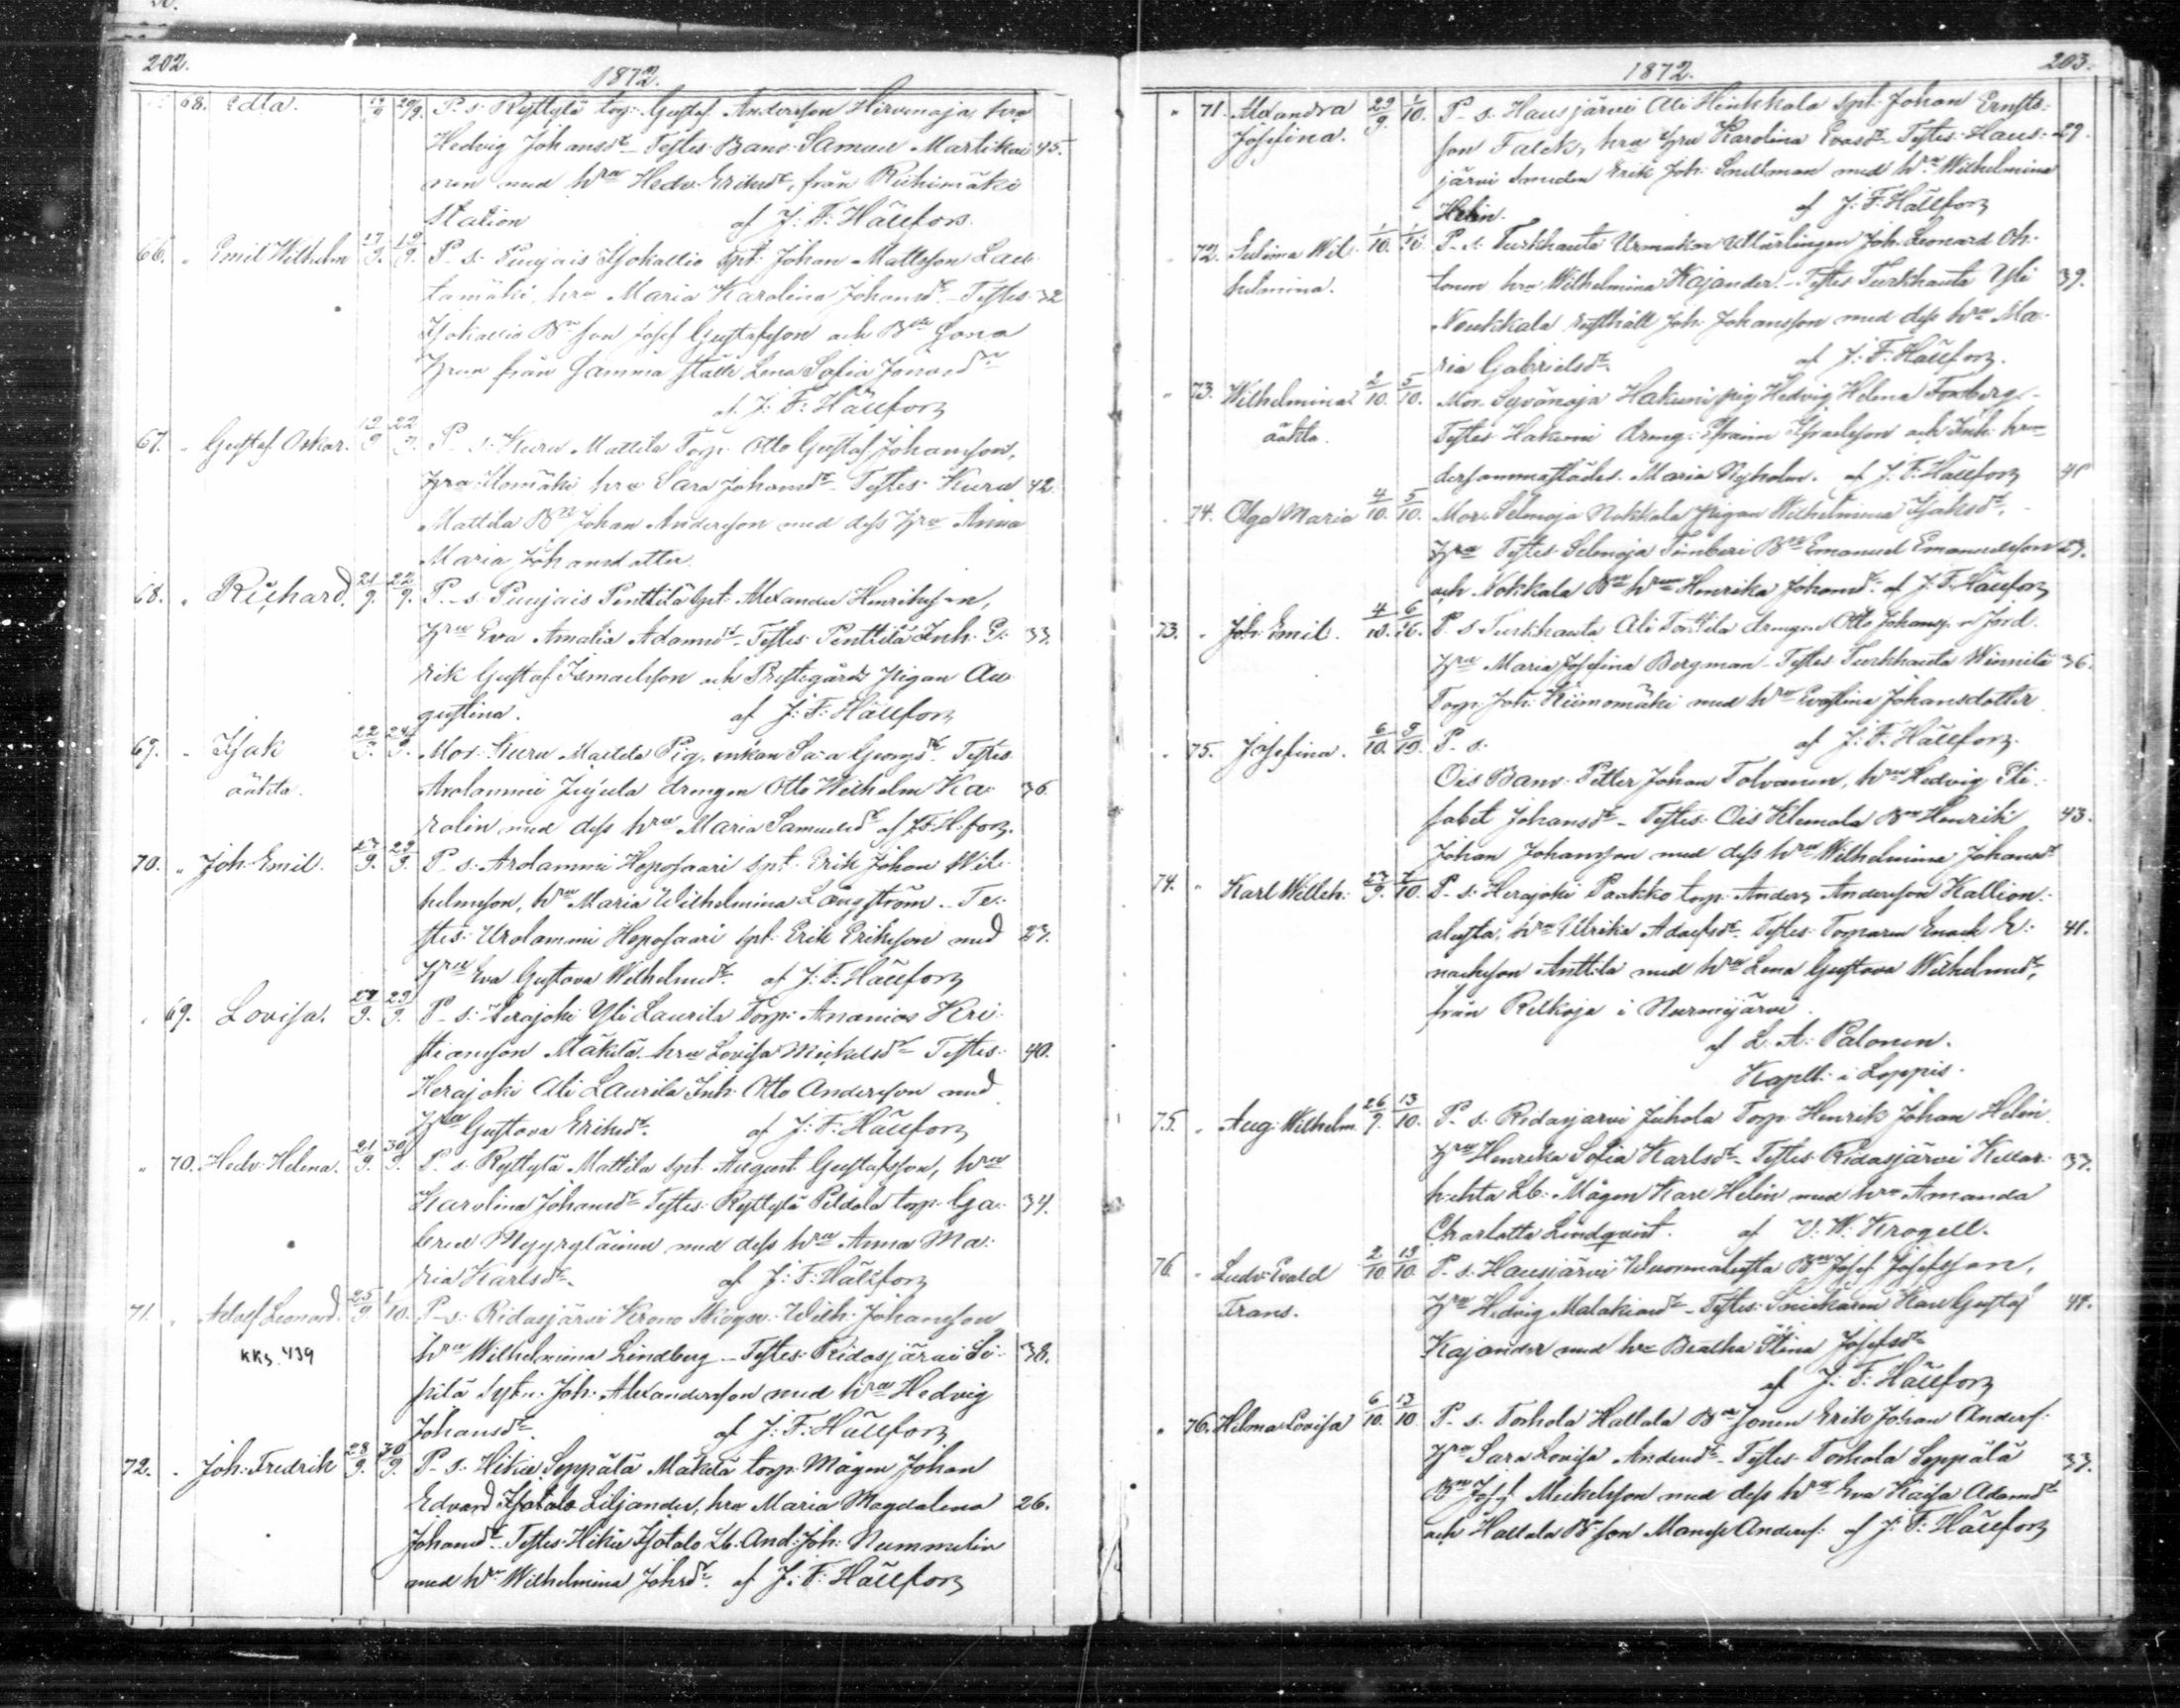 202.
1872.
68. Edla. 17/9 20/9. P. s. Ryttylä torp. Gustaf Andersson Hirvenoja, hru
Hedvig Johansdr – Testes: Banv. Samuel Martikai 45.
nen med hru Hedv. Eriksdr, från Riihimäki
Station af J. F. Hällfors.
66. " Emil Wilhelm 17/9. 19/9. P. s. Puujais Isokallio spt. Johan Mattsson Lau
tamäki, hru Maria Karolina Johansdr – Testes: 32
Isokallio Bde son Josef Gustafsson och Bde Sona
hrun från samma ställe Lena Sofia Jonasdr
af J. F. Hällfors
67. " Gustaf Oskar. 12/9 22/9. P. s. Kuru Mattila Torp. Otto Gustaf Johansson,
hru Sara Johansdr – Testes: Kuru 42.
Mattila Bde Johan Andersson med dess hru Anna
Maria Johansdotter.
68. " Richard. 21/9. 22/9. P. s. Puujais Penttilä spt. Alexander Henriksson,
hru Eva Amalia Adamsdr – Testes: Penttilä Inh. E: 33.
rik Gustaf Ismaelsson och Prestegårds Pigan Au
gustina. af J. F. Hällfors
69. " Isak 22/9. 24/9. Mor. Kuru Mattila Pig. enkan Sara Georgsdr. Testes
oäkta. Arolammi Jujula drengen Otto Wilhelm Ka: 36.
rolin med dess hru Maria Samuelsdr af J. F. H:fors.
70. " Joh. Emil. 27/9. 29/9. P. s. Arolammi Heposaari spt. Erik Johan Wil:
helmsson, hru Maria Wilhelmina Långström. – Te:
stes: Arolammi Heposaari spt. Erik Eriksson med 27.
hru Eva Gustava Wilhelmsdr. af J. F. Hällfors
" 69. Lovisa. 27/9. 29/9. P. s. Herajoki Yli Laurila Torp. Ananias Kri
stiansson Mäkilä, hru Lovisa Mickelsdr – Testes: 40.
Herajoki Ali Laurila Inh. Otto Andersson med
hru Gustava Eriksdr. af J. F. Hällfors
" 70. Hedv. Helena. 21/9. 30/9. P. s. Ryttylä Mattila spt. August Gustafsson, hru
Karolina Johansdr Testes: Ryttylä Peldola torp. Ga: 34.
briel Myyryläinen med dess hru Anna Ma:
ria Karlsdr. af J. F. Hällfors
71. " Adolf Leonard. 25/9. 1/10. P. s. Ridasjärvi Krono Skogsv. Wilh. Johansson
KKs. 439 hru Wilhelmina Lindberg – Testes: Ridasjärvi Li: 38.
pilä Joh. Alexandersson med hru Hedvig
Johansdr. af J. F. Hällfors
72. " Joh. Fredrik 28/9. 30/9. P. s. Hikiä Seppälä Mäkelä torp. Mågen Johan
Edvard Isotalo Liljander, hru Maria Magdalena 26.
Johansdr – Testes: Hikiä Isotalo Lb. And. Joh. Nummelin
med hru Wilhelmina Johsdr. af J. F. Hällfors
1872.
203.
" 71. Alexandra 29/9. 1/10. P. s. Hausjärvi Ali Hinkkala spt. Johan Ernsts:
Josefina. son Falck, hru Karolina Evasdr – Testes: Haus: 29.
järvi smeden Erik Joh. Snellman med hru Wilhelmina
Helin. af J. F. Hällfors
" 72. Selima Wil: 1/10. P. s. Turkhauta Urmakar utlärlingen Joh. Leonard Oh:
helmina. tonen hru Wilhelmina Kajander. – Testes: Turkhauta Yli 39.
Noukkala rusthåll Joh. Johansson med dess hru Ma:
ria Gabrielsdr. af J. F. Hällfors.
" 73. Wilhelmina 2/10. 5/10. Mor. Syvänoja Hakuni pig. Hedvig Helena Forsberg. –
oäkta. Testes: Hakuni dreng. Efraim Israelsson och Inh. hru
dersammastädes. Maria Nyholm. af J. F. Hällfors 41
" 74. Olga Maria 4/10. 5/10. Mor. Selmoja Nokkala pigan Wilhelmina Isaksdr, –
hru Testes: Selmoja Timberi Bde Emanuel Emanuelsson 27.
och Nokkala Bde hrun Henrika Johansdr. af J. F. Hällfors
73. " Joh. Emil. 4/10. 6/10. P. s. Turkhauta Ali Tottila drengen Otto Johanss.
hru Maria Josefina Bergman – Testes: Turkhauta Winnilä 36.
Torp. Joh. Kiimomäki med hru Evastina Johansdotter
" 75. Josefina. 6/10. P. s. af J. F. Hällfors.
Ois Banv. Petter Johan Tolvanen, hru Hedvig Eli:
sabet Johansdr – Testes: Ois Klemola Bde Henrik 43.
Johan Johansson med dess hru Wilhelmina Johansdr
74. " Karl Wilhelm: 27/9. 7/10. P. s. Herajoki Paakko torp. Anders Andersson Kallion:
alusta, hru Ulrika Adolfsdr. Testes: Torparen Enock E: 41.
nocksson Anttila med hru Lena Gustava Wilhelmsdr,
från Relkoja i Nurmijärvi.
af L. A. Palonen.
Kapell. i Loppis.
75. " Aug. Wilhelm. 26/9. 13/10. P. s. Ridasjärvi Juhola Torp. Henrik Johan Helin
hru Henrika Sofia Karlsdr – Testes: Ridasjärvi Kellar: 37.
Lb. Mågen Karl Helin med hru Amanda
Charlotta Lindqvist. af V. W. Krogell.
76. " Ludv. Evald 2/10. 13/10. P. s. Hausjärvi Wuorenalusta Bde Josef Josefsson,
Frans. hru Hedvig Malakiasdr – Testes: Snickaren Karl Gustaf 44.
Kajander med hru Beatha Stina Josefsdr
af J. F. Hällfors
" 76. Hilma Lovisa 6/10. 13/10. P. s. Torhola Hallala Bde sonen Erik Johan Anderss.
hru Sara Lovisa Andersdr – Testes: Torhola Seppälä 33.
Bde Josef Mickelsson med dess hru Eva Kaisa Adamsdr
och Hallala Bde son Manasse Anderss. af J. F. Hällfors